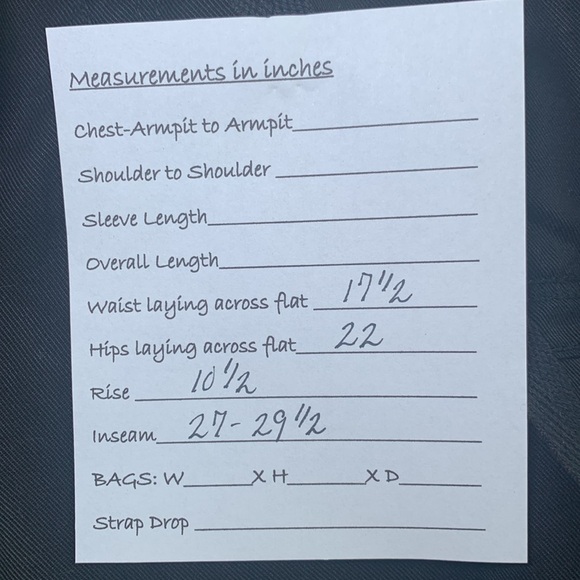 Measurements in inches
Chest-Armpit to Armpit
Shoulder to Shoulder
Sleeve Length
Overall Length
Waist laying across flat 17 1/2
Hips laying across flat 22
Rise 10 1/2
Inseam 27 - 29 1/2
BAGS: W X H X D
Strap Drop